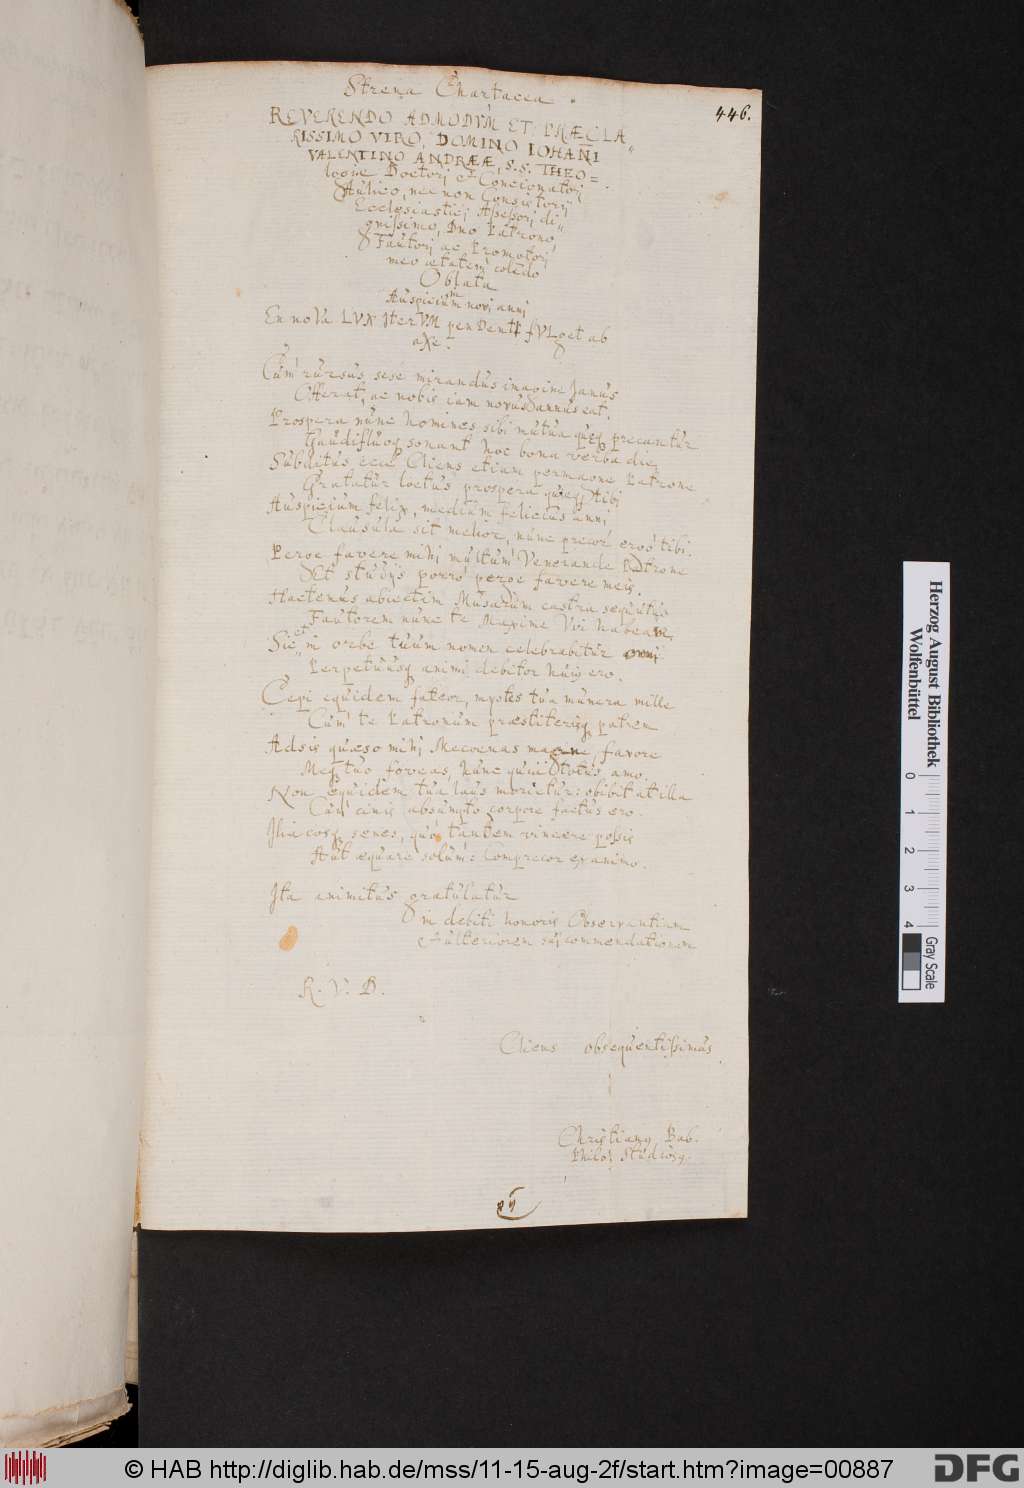 Strena Chartacea.
446.
REVERENDO ADMODVM ET PRÆCLA
RISSIMO VIRO, DOMINO IOHANI
VALENTINO ANDREÆ, S.S. THEO=
logiæ Doctori, et Concionatori
Aulico, nec non Consistorij
Ecclesiastici Assessori di"
gnissimo, Dno Patrono,
Fautori ac Promotori
meo ætatem colendo
Oblata
Auspicium novi anni
En noVa LVX IterVM penDentI fVLget ab
aXe.
Cùm rursus sese mirandus imagine Janus
Offerat, ac nobis iam novus annus eat.
Prospera nunc homines sibi mutua quæq precantur
Gaudifluoq sonant hoc bona verba die
Subditus ecce Cliens etiam permagne Patrone
Gratatur lœtus prospera quæq tibi
Auspicium felix, medium felicius anni
Clausula sit melior, nunc precor eroo tibi.
Perge favere mihi multum Venerande Patrone
Et studijs porro perge favere meis.
Hactenus abiectim Musarum castra sequutus
Fautorem nunc te Maxime Vir habeam
Sic et in orbe tuum nomen celebrabitur omni
Perpetuusq animi debitor huius ero.
Cepi equidem fateor, mystes tua munera mille
Cùm te Patronum præstiterisq patrem
Adsis quæso mihi Mecoenas magne, favore
Meq tuo foveas, nunc quia totus amo.
Non equidem tua laus morietur: obibit at illa
Cùm cinis absumpto corpore factus ero.
Iliacosq senes, quò tandem vincere possis
Aut æquare solum: Comprecor ex animo.
Ita animitus gratulatur
in debiti honoris Observantiam
& ulteriorem sui commendationem
R. V. D.
Cliens obsequentissimus
Christianus Bab.
Philos. Studiosus.
© HAB http://diglib.hab.de/mss/11-15-aug-2f/start.htm?image=00887
DFG
Herzog August Bibliothek
Wolfenbüttel
0 1 2 3 4
Gray Scale